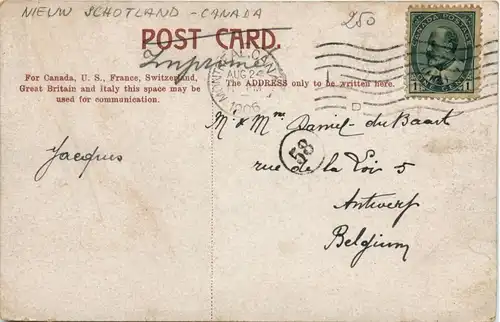 NIEUW SCHOTLAND - CANADA
250
POST CARD.
Imprimé
For Canada, U. S., France, Switzerland,
Great Britain and Italy this space may be
used for communication.
The ADDRESS only to be written here.
AUG 2
1906
CANADA POSTAGE
1 CENT 1
Mr & Mme Daniel - du Baart
58
Jacques
rue de la Loi 5
Antwerp
Belgium